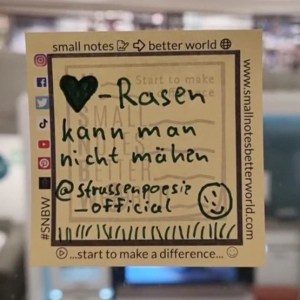 small notes better world
♥-Rasen
kann man
nicht mähen
@strassenpoesie
_official
Start to make
difference
SMALL
NOTES
BETTER
WORLD
www.smallnotesbetterworld.com
#SNBW
...start to make a difference...